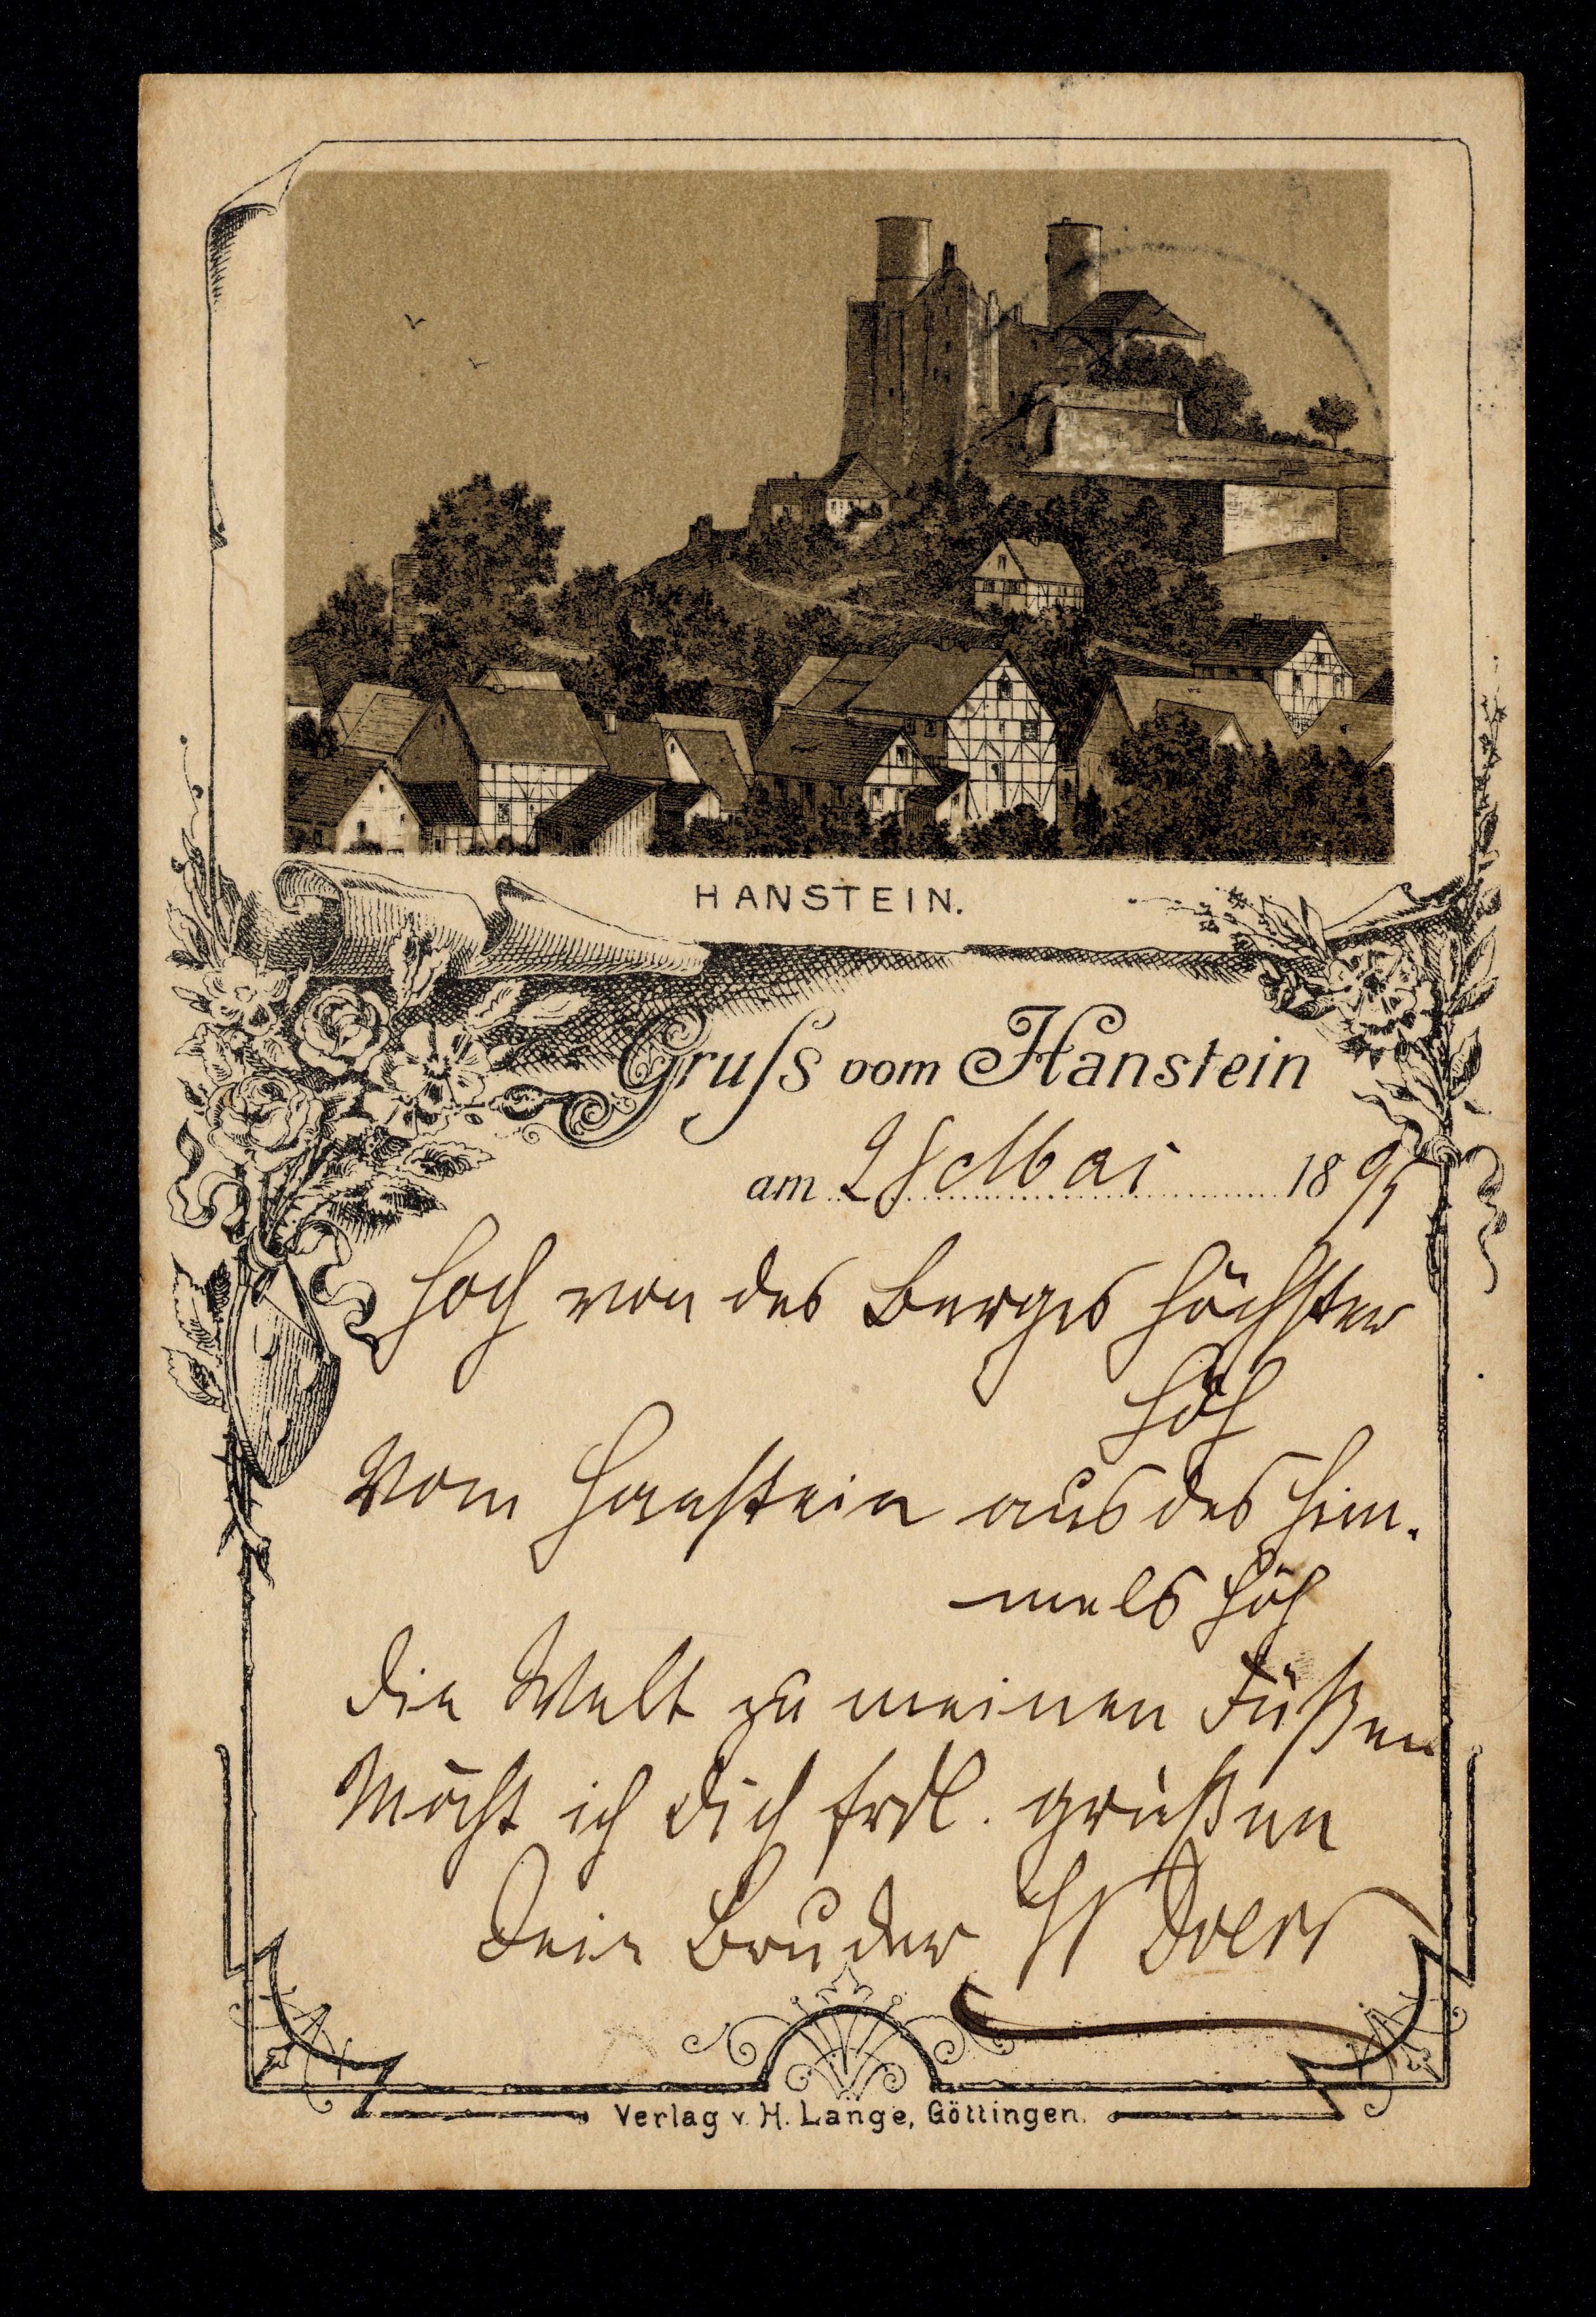 HANSTEIN.
Gruſs vom Hanstein
am 28 Mai 1895
Hoch von des Berges höchster
Höh
Vom Hanstein aus des Him-
mels Höh
die Welt zu meinen Füßen
Möcht ich Dich frdl. grüßen
Dein Bruder H
Verlag v. H. Lange, Göttingen.